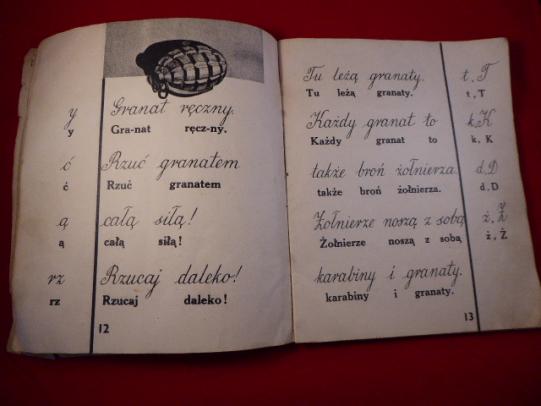 y Granat ręczny.
y Gra-nat ręcz-ny.
ć Rzuć granatem
ć Rzuć granatem
ą całą siłą!
ą całą siłą!
rz Rzucaj daleko!
rz Rzucaj daleko!
12
Tu leżą granaty. t, T
Tu leżą granaty. t, T
Każdy granat to k, K
Każdy granat to k, K
także broń żołnierza. d, D
także broń żołnierza. d, D
Żołnierze noszą z sobą ż, Ż
Żołnierze noszą z sobą ż, Ż
karabiny i granaty.
karabiny i granaty.
13